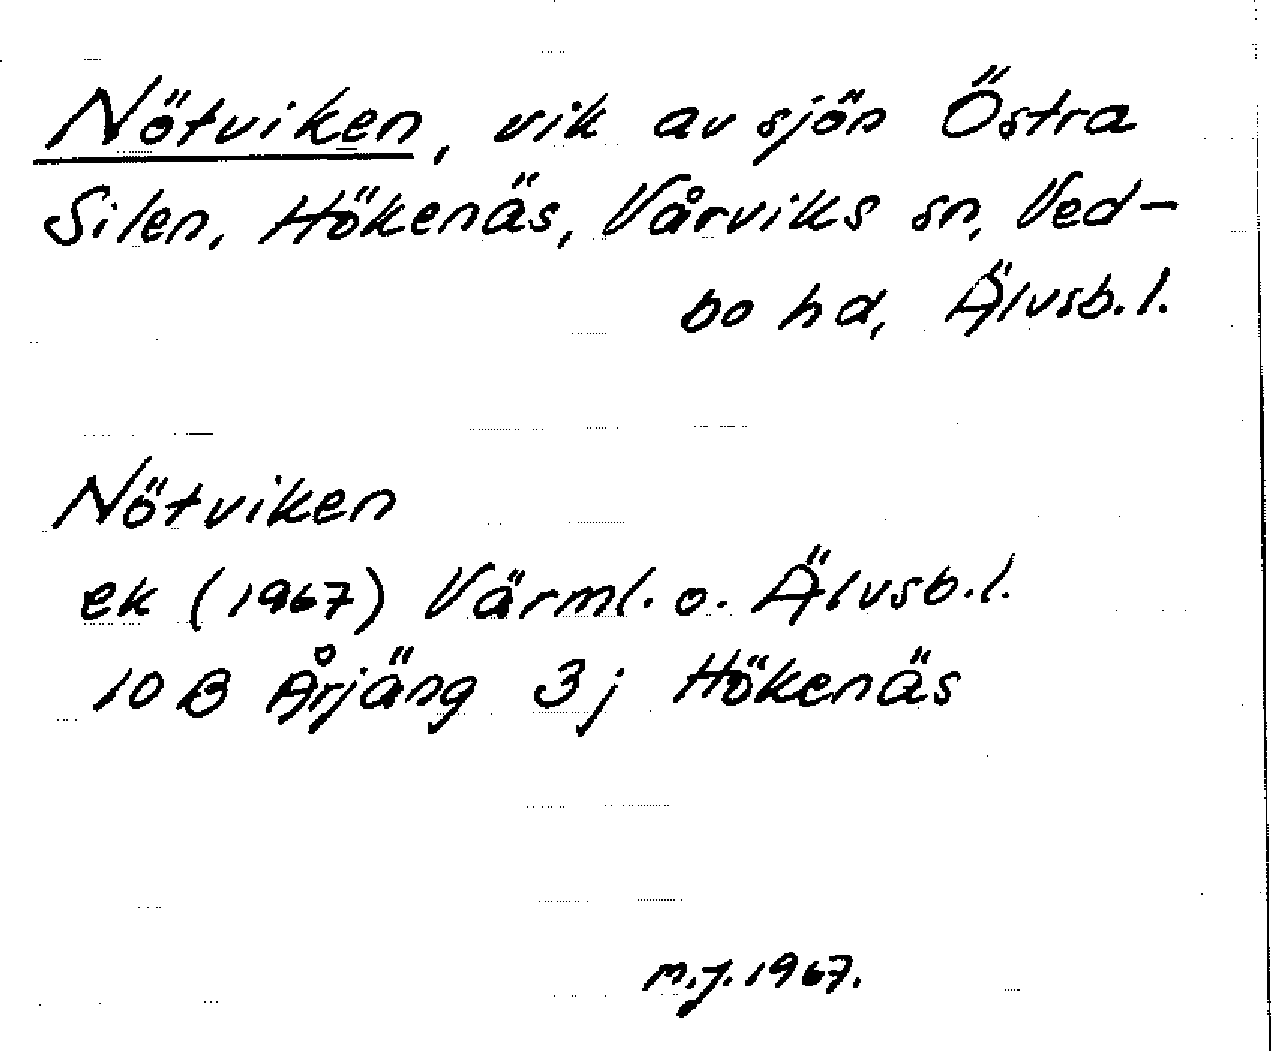 Nötviken, vik av sjön Östra
Silen, Hökenäs, Vårviks sn, Ved-
bo hd, Älvsb. l.
Nötviken
ek (1967) Värml. o. Älvsb. l.
10 B Årjäng 3 j Hökenäs
m.j. 1967.